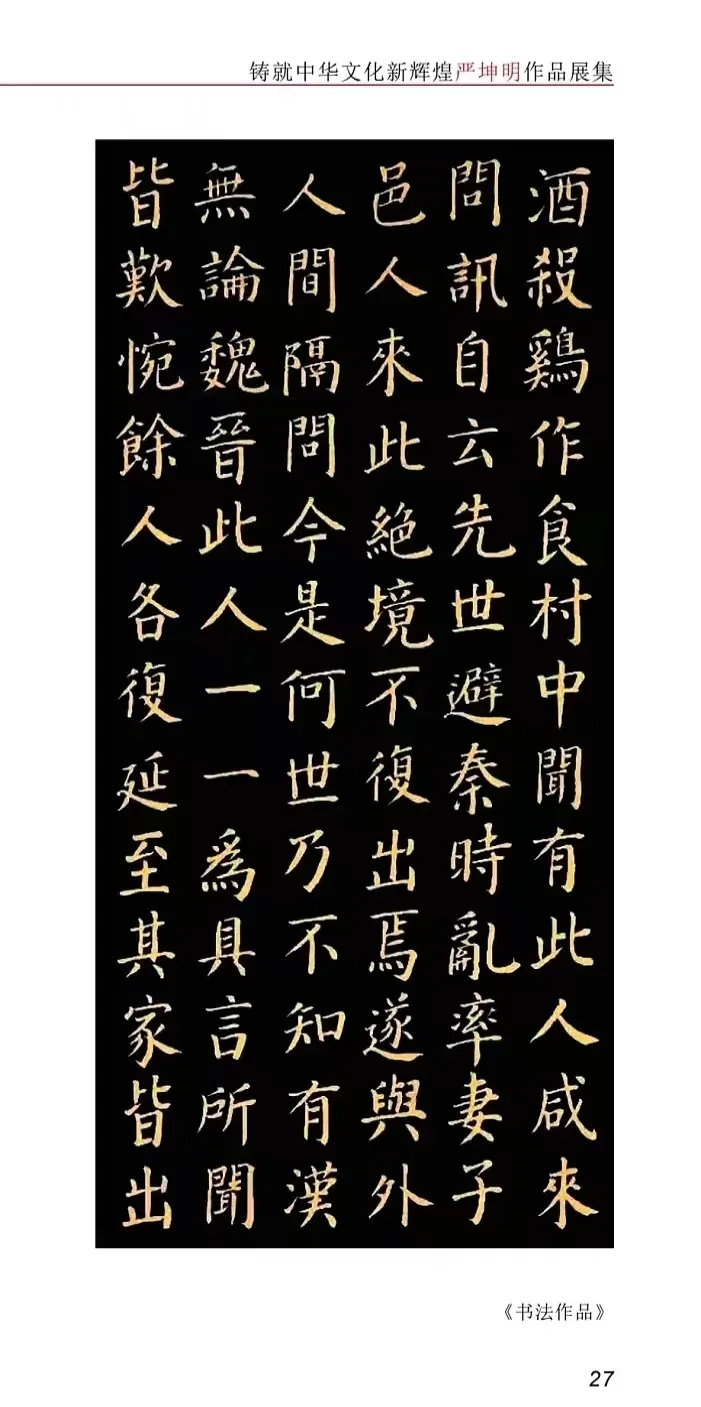 铸就中华文化新辉煌严坤明作品展集
酒殺鷄作食村中聞有此人咸來
問訊自云先世避秦時亂率妻子
邑人來此絕境不復出焉遂與外
人間隔問今是何世乃不知有漢
無論魏晉此人一一爲具言所聞
皆歎惋餘人各復延至其家皆出
《书法作品》
27